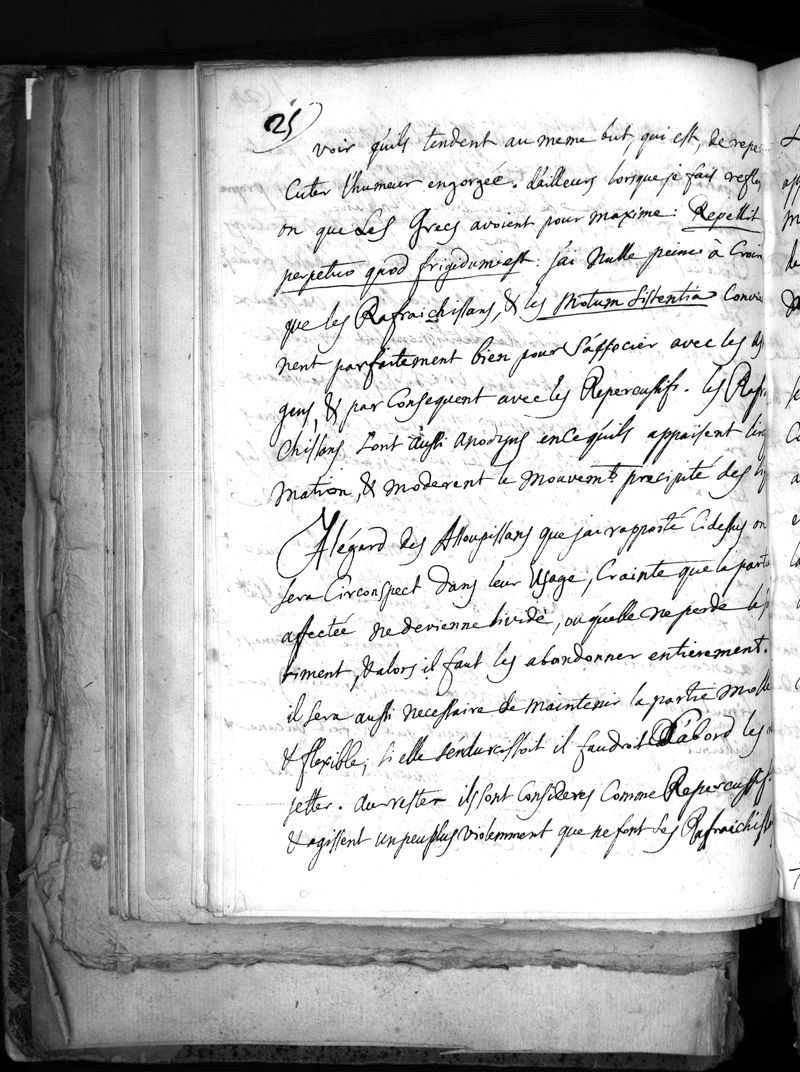 25)
voir qu'ils tendent au meme but, qui est, de reper
cuter l'humeur engorgée. d'ailleurs lorsque je fais refle
on que Les Grecs avoient pour maxime : Repellit
perpetuo quod frigidum est : j'ai nulle peine à Croi
que les Rafraichissans, & les Motum Sistentia Convi
nent parfaitement bien pour S'associer avec les A
gens, & par Consequent avec les Repercussifs. les Rafr
chissans Sont aussi anodyns en ce qu'ils appaisent l'in
mation, & moderent le mouvemt. precipité des
A l'égard des Assoupissans que j'ai rapporté Cidessus on
Sera Circonspect dans leur Usage, Crainte que la part
affectée ne devienne livide, ou quelle ne perde le
timent, & alors il faut les abandonner entierement.
il Sera aussi necessaire de maintenir la partie molle
& flexible, si elle s'endurcissoit il faudroit D'abord les
jetter. au rester ils sont Consideres Comme Repercussifs
& agissent un peu plus violemment que ne font Les Rafraichiss